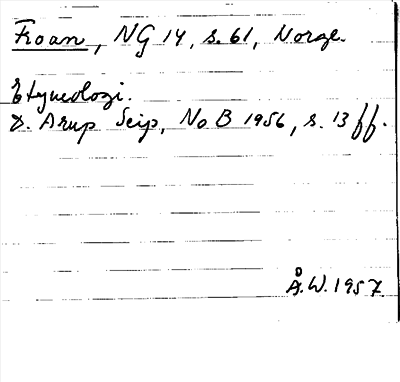 Froan, NG 14, s. 61, Norge.
Etymologi.
D. Arup Seip, NoB 1956, s. 13 ff.
Å.W. 1957.